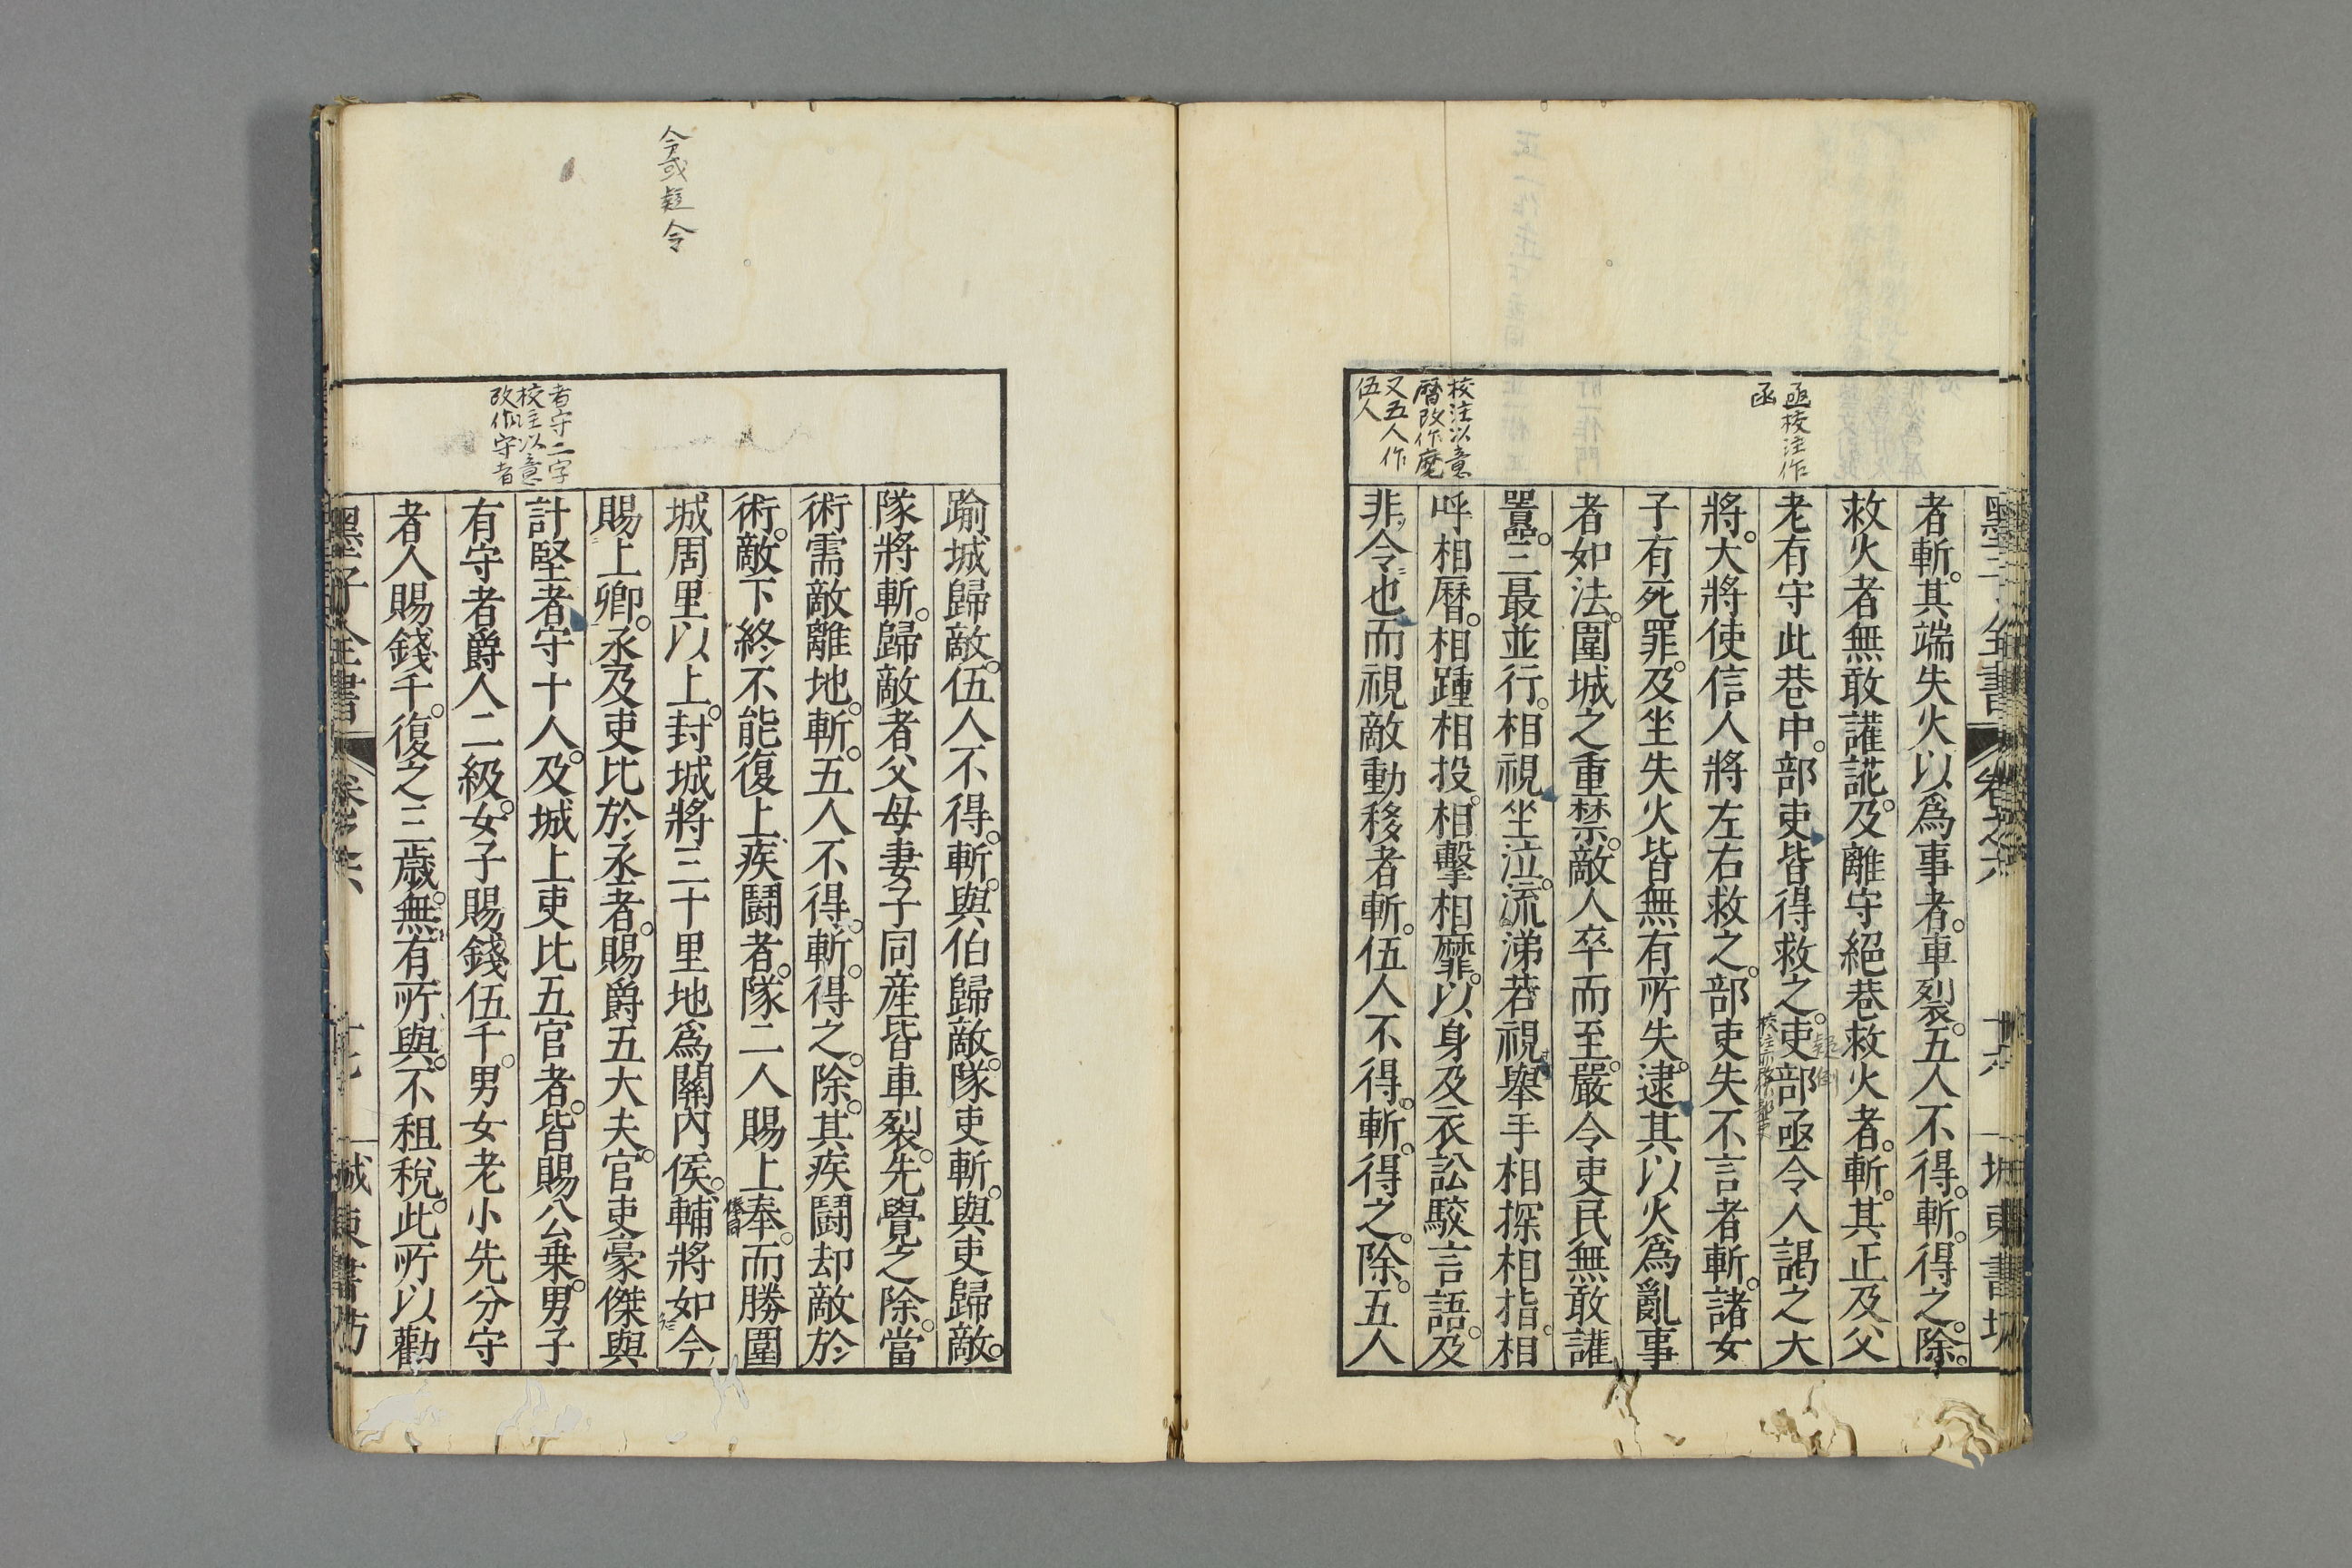 墨子全書
卷之六
十六
亟校注作
函
校注以意
曆改作麾
又五人作
伍人
者斬其端失火以爲事者車裂五人不得斬得之除
救火者無敢讙譁及離守絕巷救火者斬其正及父
老有守此巷中部吏皆得救之吏部亟令人謁之大
疑倒
將大將使信人將左右救之部吏失不言者斬諸女
子有死罪及坐失火皆無有所失逮其以火爲亂事
者如法圍城之重禁敵人卒而至嚴令吏民無敢讙
嚻三最並行相視坐泣流涕若視舉手相探相指相
呼相曆相踵相投相擊相靡以身及衣訟駮言語及
非令也而視敵動移者斬伍人不得斬得之除五人
令或疑令
者守二字
校注以意
改作守者
踰城歸敵伍人不得斬與伯歸敵隊吏斬與吏歸敵
隊將斬歸敵者父母妻子同産皆車裂先覺之除當
術需敵離地斬五人不得斬得之除其疾鬪却敵於
術敵下終不能復上疾鬪者隊二人賜上奉而勝圍
城周里以上封城將三十里地爲關內侯輔將如今
賜上卿丞及吏比於丞者賜爵五大夫官吏豪傑與
計堅者守十人及城上吏比五官者皆賜公乗男子
有守者爵人二級女子賜錢伍千男女老小先分守
者人賜錢千復之三歲無有所與不租稅此所以勸
墨子全書
卷之六
十七